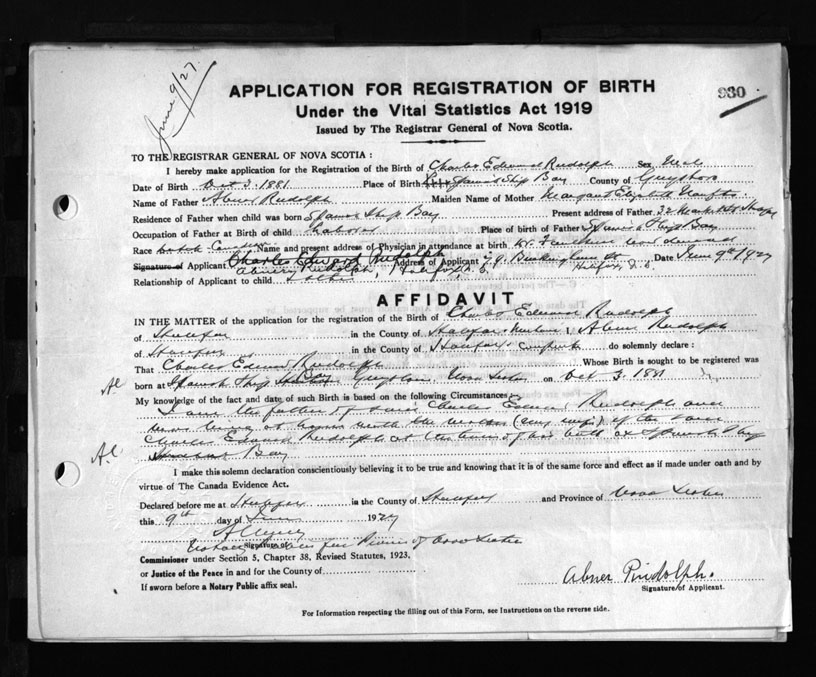 June 9/27.
APPLICATION FOR REGISTRATION OF BIRTH
930
Under the Vital Statistics Act 1919
Issued by The Registrar General of Nova Scotia.
TO THE REGISTRAR GENERAL OF NOVA SCOTIA:
I hereby make application for the Registration of the Birth of Charles Edward Rudolph Sex Male
Date of Birth Oct 3. 1881 Place of Birth Spanish Ship Bay County of Guysboro
Name of Father Abner Rudolph Maiden Name of Mother Margaret Elizabeth
Residence of Father when child was born Spanish Ship Bay Present address of Father 32
Occupation of Father at Birth of child Place of birth of Father Spanish Ship Bay
Race Name and present address of Physician in attendance at birth now deceased
Signature of Applicant Charles Edward Rudolph Address of Applicant 29 Buckingham St Date June 9th 1927
Abner Rudolph, Halifax, N.S. Halifax, N.S.
Relationship of Applicant to child Father
AFFIDAVIT
IN THE MATTER of the application for the registration of the Birth of Charles Edward Rudolph
of Halifax in the County of Halifax I, Abner Rudolph
of Halifax in the County of Halifax do solemnly declare:
That Charles Edward Rudolph Whose Birth is sought to be registered was
born at Spanish Ship Bay Guysboro, Nova Scotia on Oct 3. 1881
My knowledge of the fact and date of such Birth is based on the following Circumstances:
I am the father of said Charles Edward Rudolph and
was living at home with the mother (my wife) of the said
Charles Edward Rudolph at the time of his birth at Spanish Ship
Bay
I make this solemn declaration conscientiously believing it to be true and knowing that it is of the same force and effect as if made under oath and by
virtue of The Canada Evidence Act.
Declared before me at Halifax in the County of Halifax and Province of Nova Scotia
this 9th day of June 1927
Notary Public of Nova Scotia
Signature
Commissioner under Section 5, Chapter 38, Revised Statutes, 1923.
or Justice of the Peace in and for the County of
If sworn before a Notary Public affix seal.
Abner Rudolph.
Signature of Applicant.
For Information respecting the filling out of this Form, see Instructions on the reverse side.